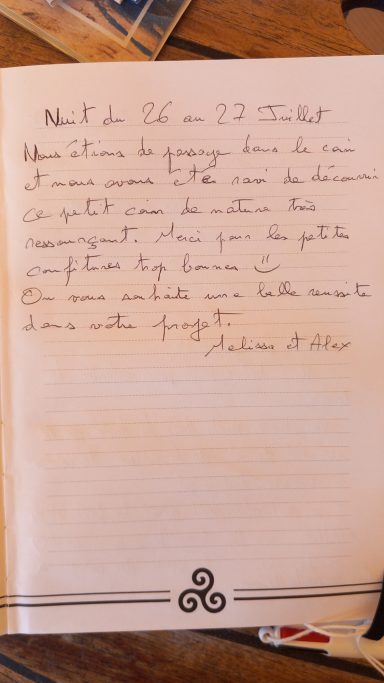 Nuit du 26 au 27 Juillet
Nous étions de passage dans le coin
et nous avons été ravi de découvrir
ce petit coin de nature très
ressourçant. Merci pour les petites
confitures trop bonnes :)
On vous souhaite une belle reussite
dans votre projet.
Melissa et Alex